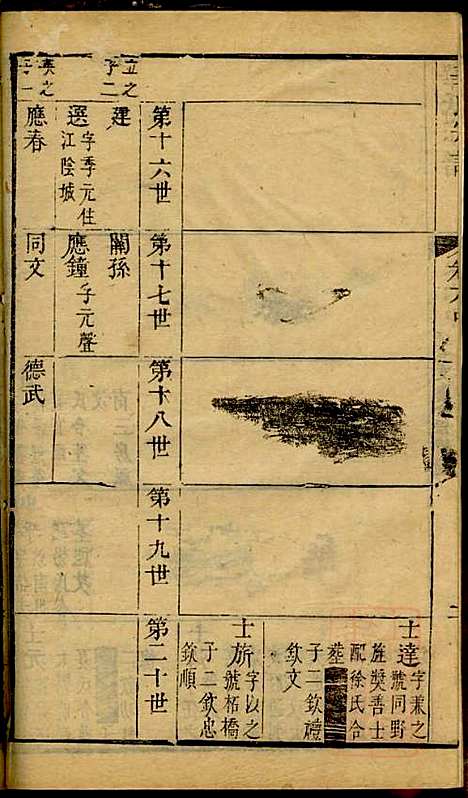 士達
字兼之
號同野
旌奬善士
配徐氏合
塟
子二欽禮
欽文
士旂
字以之
號栢橋
子二欽忠
欽順
第十六世
第十七世
第十八世
第十九世
第二十世
立之
子二
建
選
字季元住
江陰城
應春
關孫
應鐘
字元聲
同文
德武